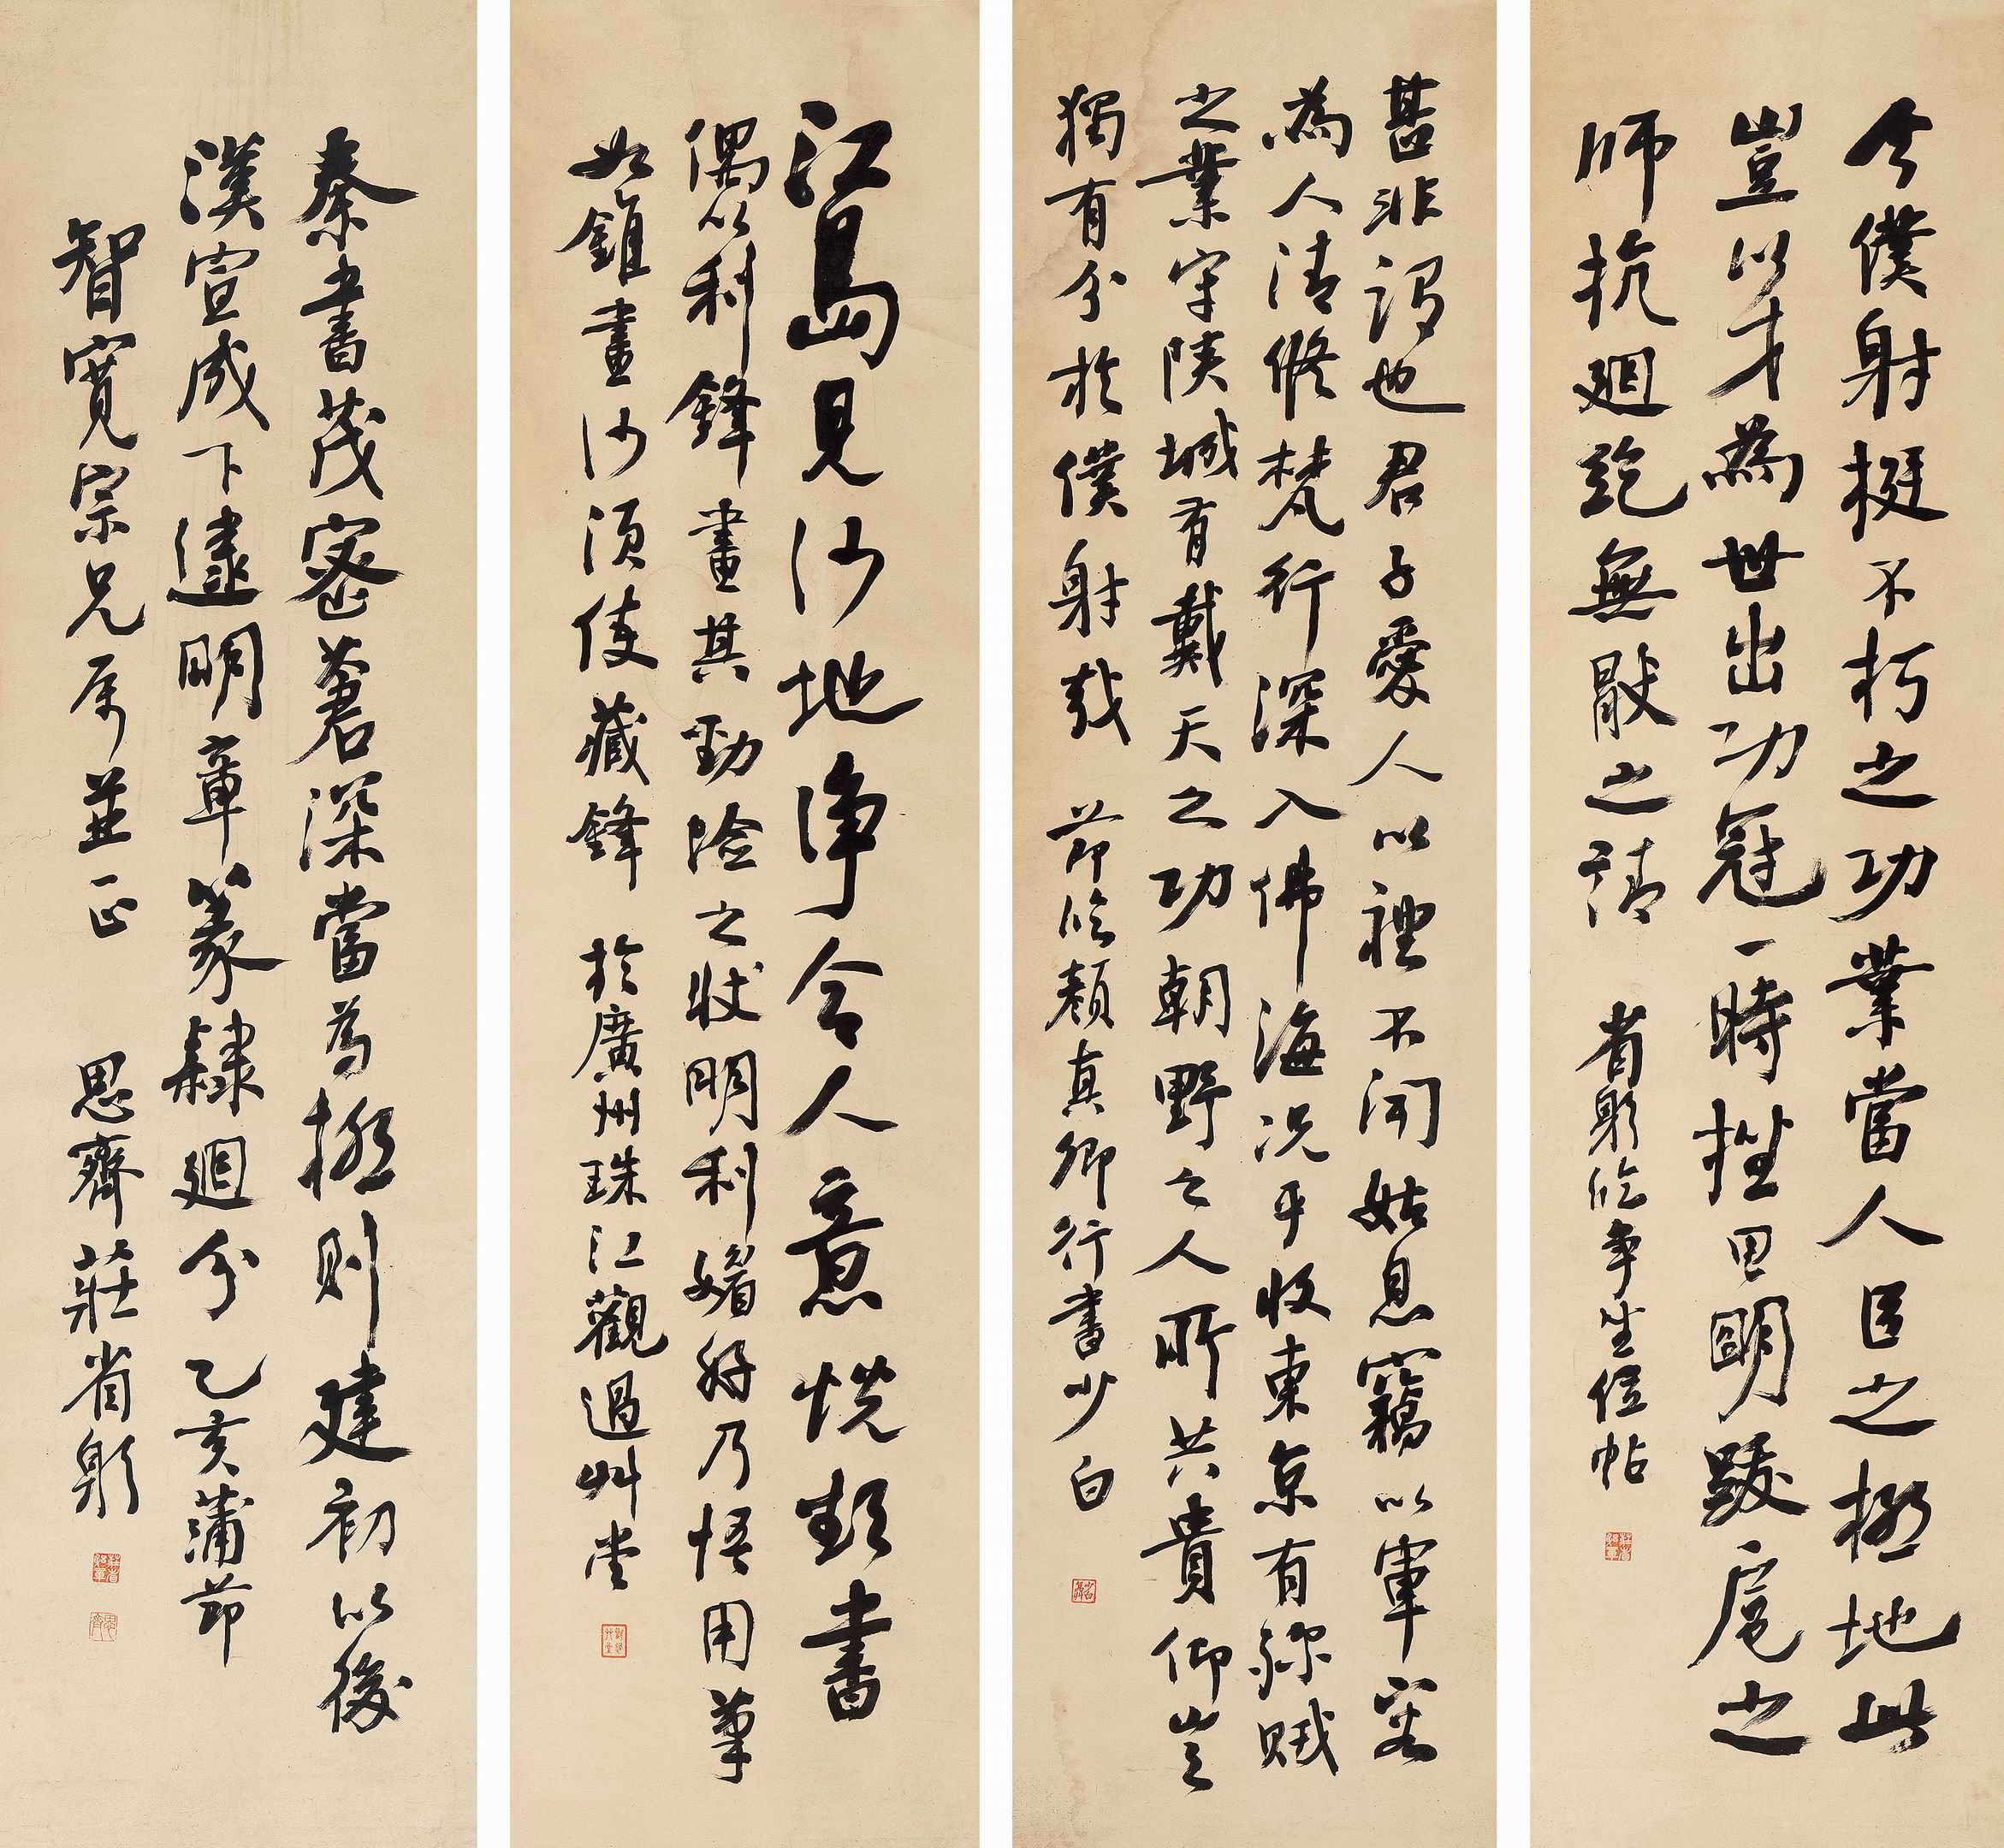 今僕射挺不朽之功業當人臣之極地此
豈以才為世出功冠一時挫思明跋扈之
師抗迴紇無厭之請 省躬臨争坐位帖
甚非謂也君子愛人以禮不聞姑息竊以軍容
為人清修梵行深入佛海況乎收東京有殄賊
之業守陝城有戴天之功朝野之人所共貴仰豈
獨有分於僕射哉 節臨顏真卿行書少白
江島見沙地淨令人意恱欲書
偶以利鋒畫其勁險之狀明利媚好乃悟用筆
如錐畫沙須使藏鋒 於廣州珠江觀過艸堂
秦書茂密蒼深當為極則建初以後
漢宣成下逮明章篆隸迴分乙亥蒲節
智寬宗兄属並正 思齊莊省躬